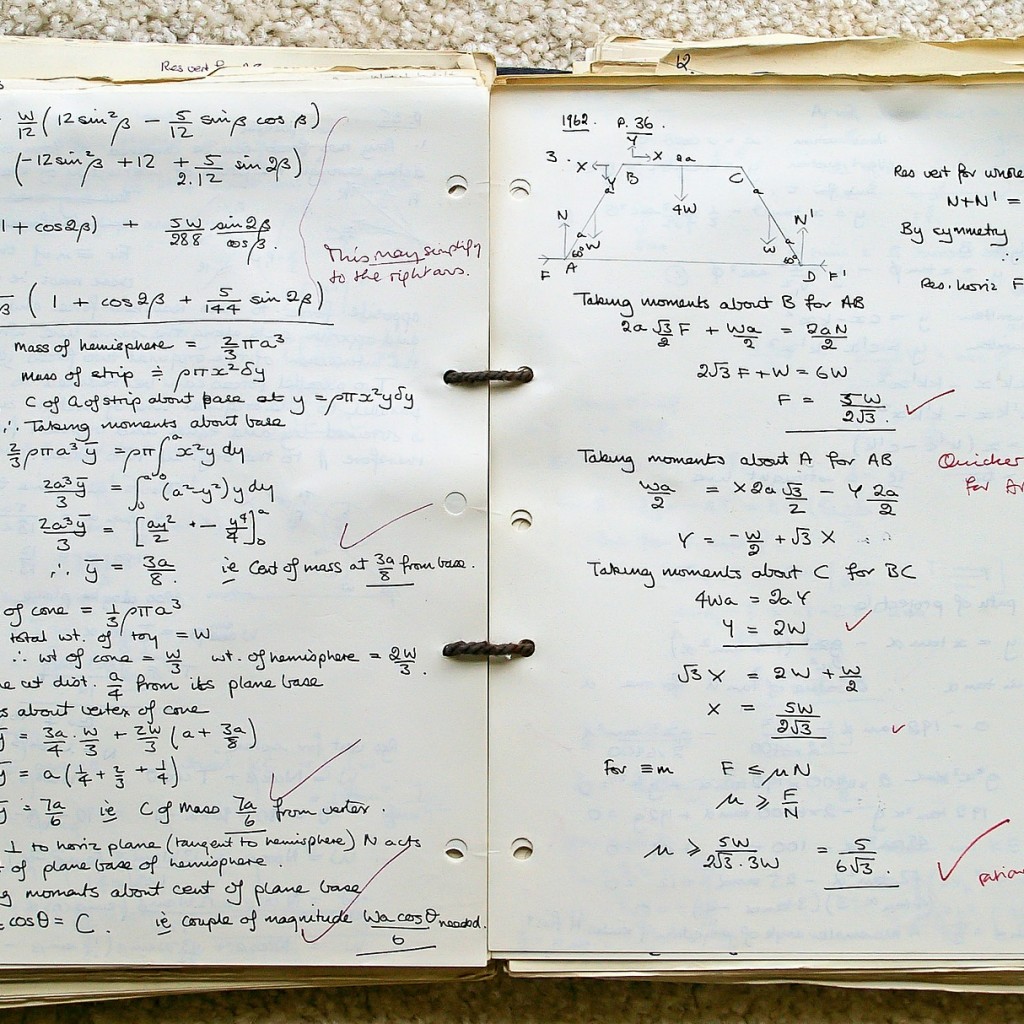 Res vert
W/12 (12 sin²β - 5/12 sinβ cos β)
(-12 sin²β + 12 + 5/2.12 sin 2β)
1 + cos2β) + 5W/288 sin2β/cosβ.
This may simplify
to the right ans.
(1 + cos 2β + 5/144 sin 2β)
mass of hemisphere = 2/3 πa³
mass of strip ≑ ρπx²δy
C of G of strip about base at y = ρπx²yδy
∴ Taking moments about base
2/3 ρπa³ȳ = ρπ∫₀ᵃ x²y dy
2a³ȳ/3 = ∫₀ᵃ (a²-y²) y dy
2a³ȳ/3 = [ay²/2 + - y⁴/4]₀ᵃ
∴ ȳ = 3a/8. ie Cent of mass at 3a/8 from base.
of cone = 1/3 ρπa³
total wt. of toy = W
∴ wt of cone = W/3 wt. of hemisphere = 2W/3.
cut dist. a/4 from its plane base
s about vertex of cone
ȳ = 3a/4 . W/3 + 2W/3 (a + 3a/8)
ȳ = a(1/4 + 2/3 + 1/4)
ȳ = 7a/6 ie C of mass 7a/6 from vertex.
⊥ to horiz plane (tangent to hemisphere) N acts
of plane base of hemisphere.
g moments about cent of plane base
cosθ = C. ie couple of magnitude Wa cosθ/6 needed.
12
1962. P. 36.
3.
Y
X X 2a
Y B C
a a
4W
N N'
a W W a
60° 60°
F A D F'
Res vert for whole
N+N' =
By symmetry
∴
Res. horiz F
Taking moments about B for AB
2a √3/2 F + Wa/2 = 2aN/2
2√3 F + W = 6W
F = 5W/2√3.
Taking moments about A for AB
Quicker
for
Wa/2 = X 2a √3/2 - Y 2a/2
Y = -W/2 + √3 X
Taking moments about C for BC
4Wa = 2aY
Y = 2W
√3 X = 2W + W/2
X = 5W/2√3
For ≡m F ≤ μN
μ ≥ F/N
μ ≥ 5W/2√3.3W = 5/6√3.